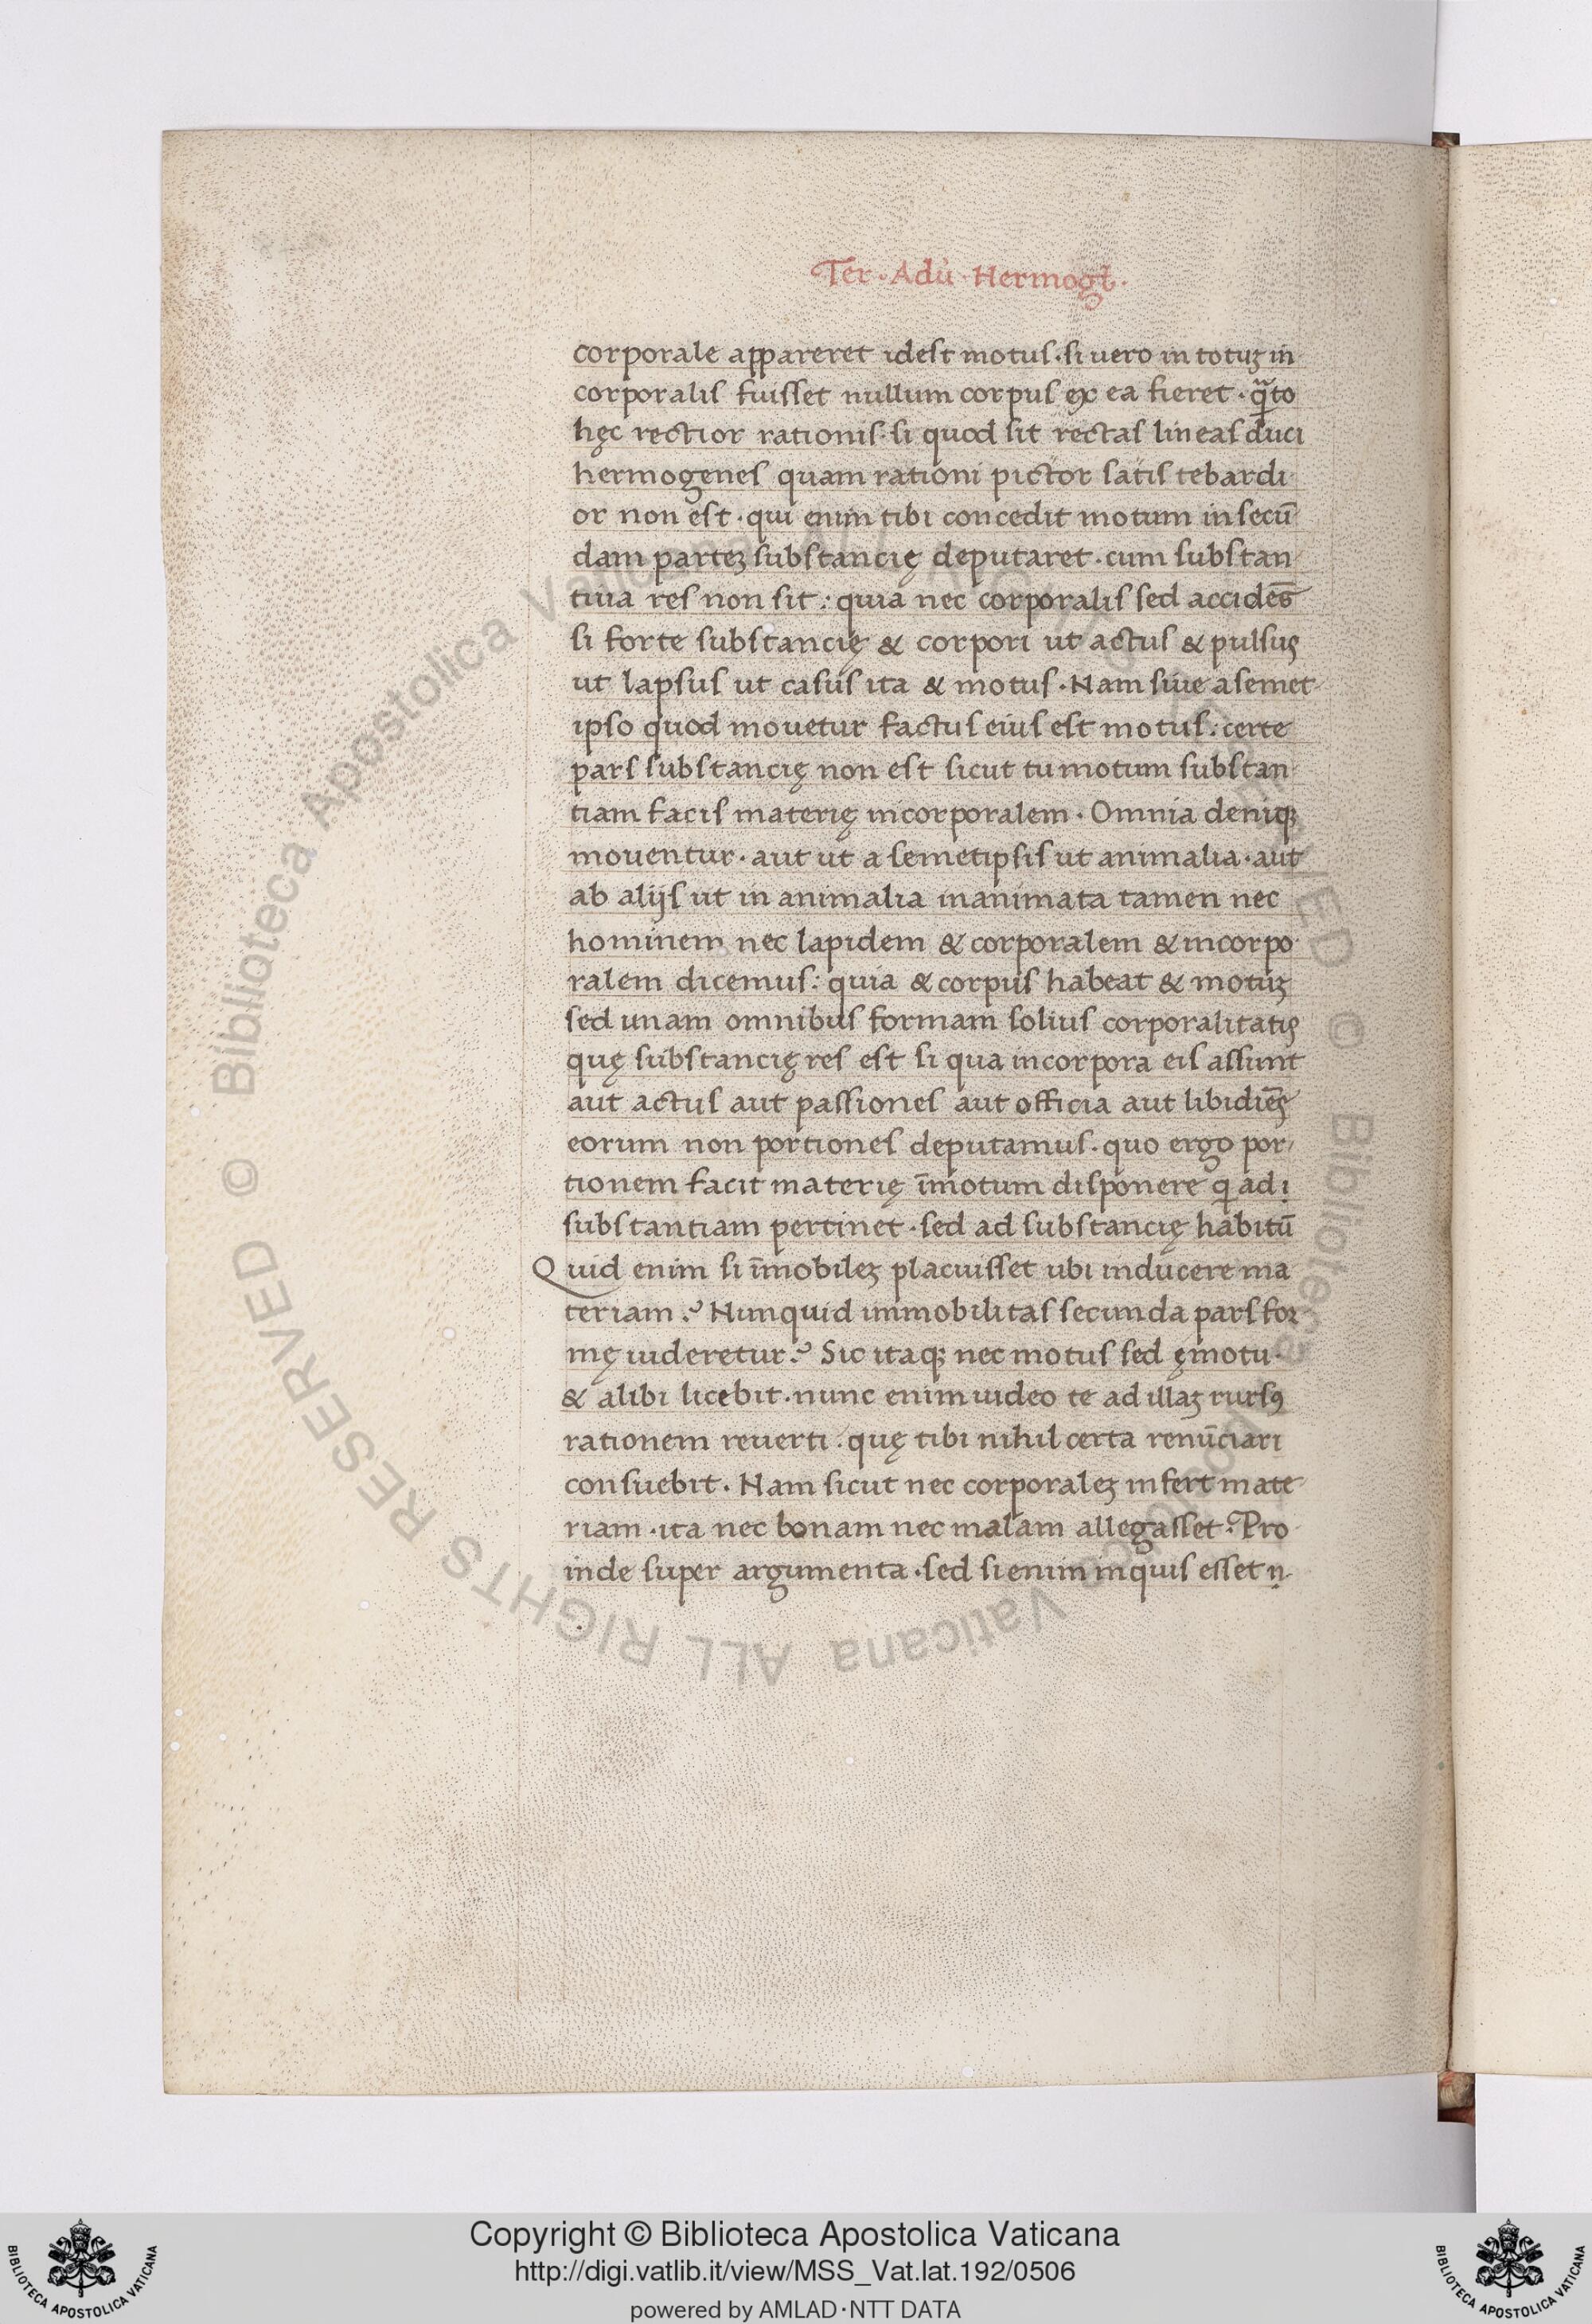 Ter · Adu̇ · Hermogł ·
corporale appareret idest motus · si uero in totuꝫ in
corporalis fuisset nullum corpus ex ea fieret · q̃to
hęc rectior rationis · si quod sit rectas lineas duci
hermogenes quam rationi pictor satis te bardi
or non est · qui enim tibi concedit motum in secū
dam parteꝫ substancię deputaret · cum substan
tiua res non sit : quia nec corporalis sed accidēs
si forte substancię & corpori ut actus & pulsus
ut lapsus ut casus ita & motus · Nam siue a semet
ipso quod mouetur factus eius est motus : certe
pars substancię non est sicut tu motum substan
tiam facis materię incorporalem · Omnia deniqꝫ
mouentur · aut ut a semetipsis ut animalia · aut
ab alijs ut in animalia inanimata tamen nec
hominem nec lapidem & corporalem & incorpo
ralem dicemus : quia & corpus habeat & motuꝫ
sed unam omnibus formam solius corporalitatis
quę substancię res est si qua incorpora eis assunt
aut actus aut passiones aut officia aut libidiēs
eorum non portiones deputamus · quo ergo por
tionem facit materię īmotum disponere q ad
substantiam pertinet · sed ad substancię habitū
Quid enim si īmobileꝫ placuisset ubi inducere ma
teriam ? Nunquid immobilitas secunda pars for
mę uideretur ? Sic itaqꝫ nec motus sed ęmotu ·
& alibi licebit · nunc enim uideo te ad illaꝫ rursꝯ
rationem reuerti · quę tibi nihil certa renūciari
consuebit · Nam sicut nec corporaleꝫ infert mate
riam · ita nec bonam nec malam allegasset · Pro
inde super argumenta · sed si enim inquis esset
Copyright © Biblioteca Apostolica Vaticana
http://digi.vatlib.it/view/MSS_Vat.lat.192/0506
powered by AMLAD · NTT DATA
BIBLIOTECA APOSTOLICA VATICANA
BIBLIOTECA APOSTOLICA VATICANA
© Biblioteca Apostolica Vaticana ALL RIGHTS RESERVED © Biblioteca Apostolica Vaticana ALL RIGHTS RESERVED